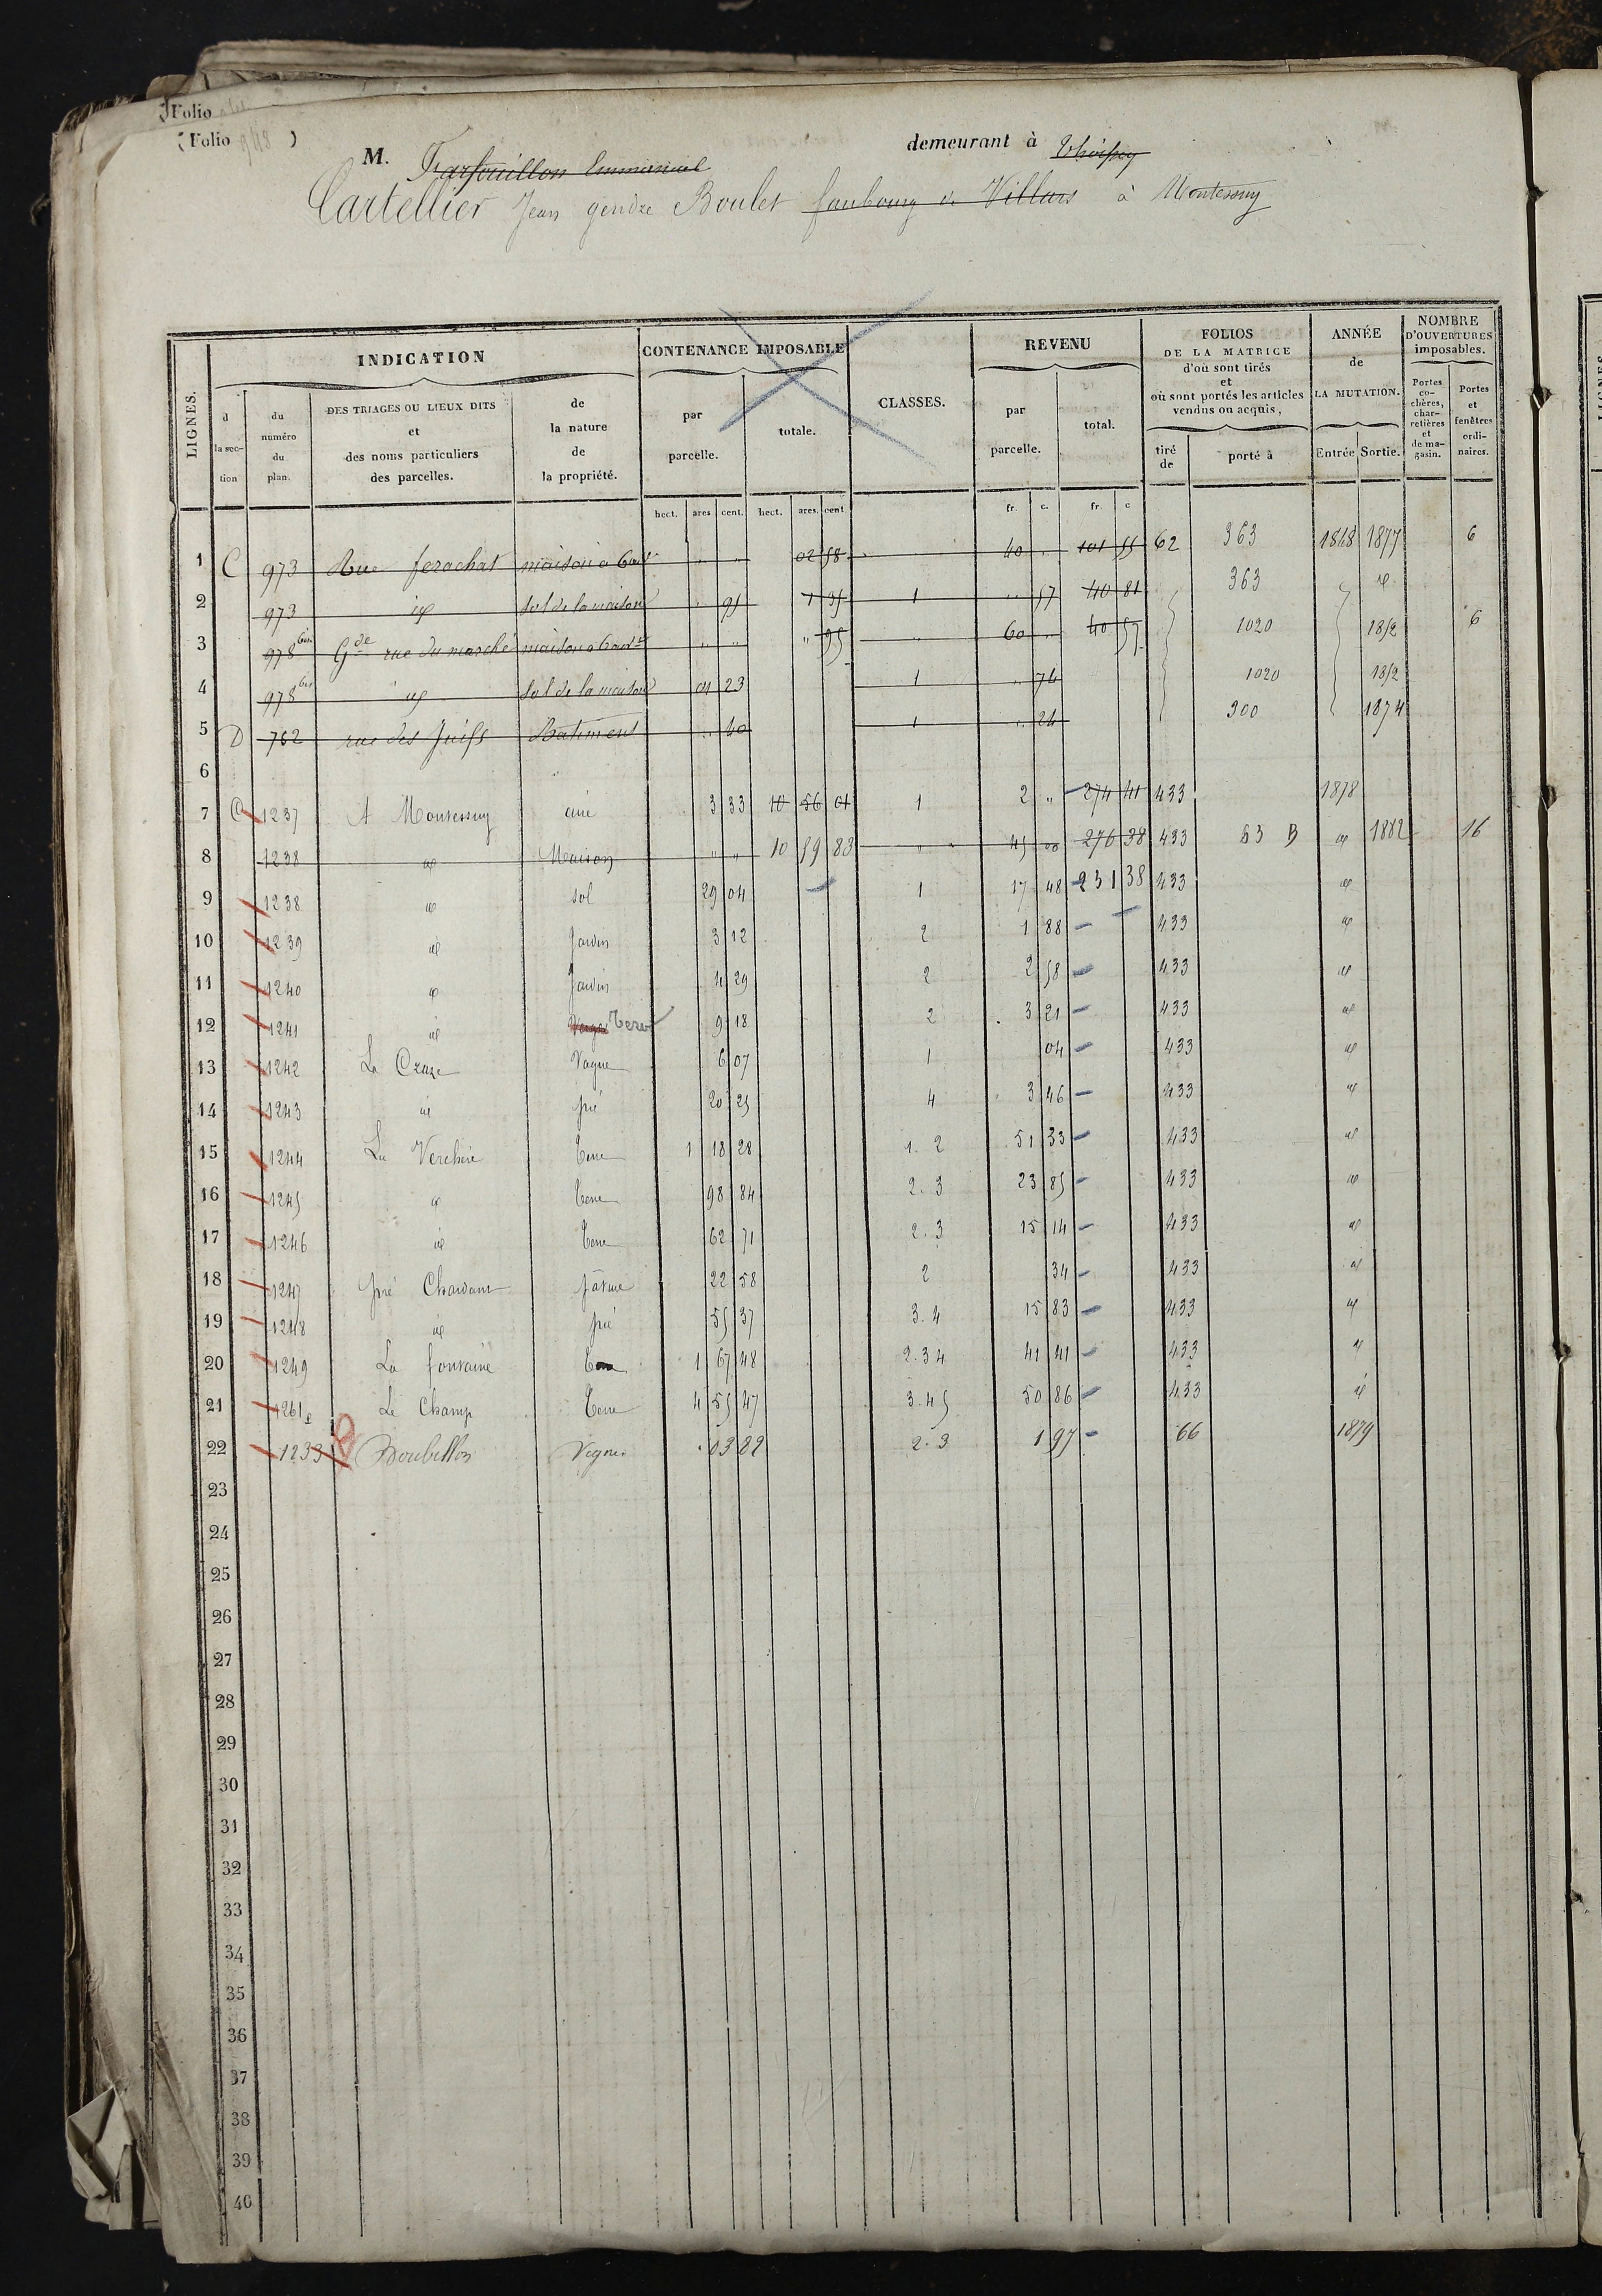 Folio
(Folio 948 )
M. Farfouillon Emmanuel demeurant à Thoissey
Cartellier Jean gendre Boulet faubourg de Villars à Montessuy
LIGNES. INDICATION CONTENANCE IMPOSABLE CLASSES. REVENU FOLIOS DE LA MATRICE d'où sont tirés et où sont portés les articles vendus ou acquis, ANNÉE de LA MUTATION. NOMBRE D'OUVERTURES imposables.
d la section du numéro du plan. DES TRIAGES OU LIEUX DITS et des noms particuliers des parcelles. de la nature de la propriété. par parcelle. totale. par parcelle. total. tiré de porté à Entrée Sortie. Portes cochères, charretières et de magasin. Portes et fenêtres ordinaires.
hect. ares cent. hect. ares. cent fr. c. fr. c
1 C 973 Rue ferachat maison à 6 ouv. " " 02 58 " 40 " 101 55 62 363 1848 1877 6
2 973 id sol de la maison " 95 1 35 1 " 57 40 81 363 id
3 978 bis Gde rue du marché maison à 6 ouvres " " " 95 " 60 " 40 57 1020 1852 6
4 978 bis id sol de la maison 01 23 1 " 76 1020 1852
5 D 762 rue des Juifs Batiment " 40 1 " 24 300 1874
6
7 C 1237 A Montessuy aire 3 33 10 56 01 1 2 " 274 41 433 1878
8 1238 id Maison " " 10 59 83 " 45 00 276 38 433 53 B id 1882 16
9 1238 id sol 29 04 1 17 48 231 38 433 id
10 1239 id Jardin 3 12 2 1 88 433 id
11 1240 id Jardin 4 29 2 2 58 433 id
12 1241 id Verger Terre 9 18 2 3 21 433 id
13 1242 La Craze Vague 6 07 1 04 433 id
14 1243 id pré 20 25 4 3 46 433 id
15 1244 La Verchère Terre 1 18 28 1. 2 51 33 433 id
16 1245 id Terre 98 84 2. 3 23 85 433 id
17 1246 id Terre 62 71 2. 3 15 14 433 id
18 1247 pré Chardant pâture 22 58 2 34 433 id
19 1248 id pré 55 37 3. 4 15 83 433 id
20 1249 La fontaine Terre 1 67 48 2. 3 4 41 41 433 id
21 1261 p Le Champ Terre 4 55 47 3. 4 5 50 86 433 id
22 1233 Boubillon Vigne. 03 82 2. 3 1 97 66 1879
23
24
25
26
27
28
29
30
31
32
33
34
35
36
37
38
39
40